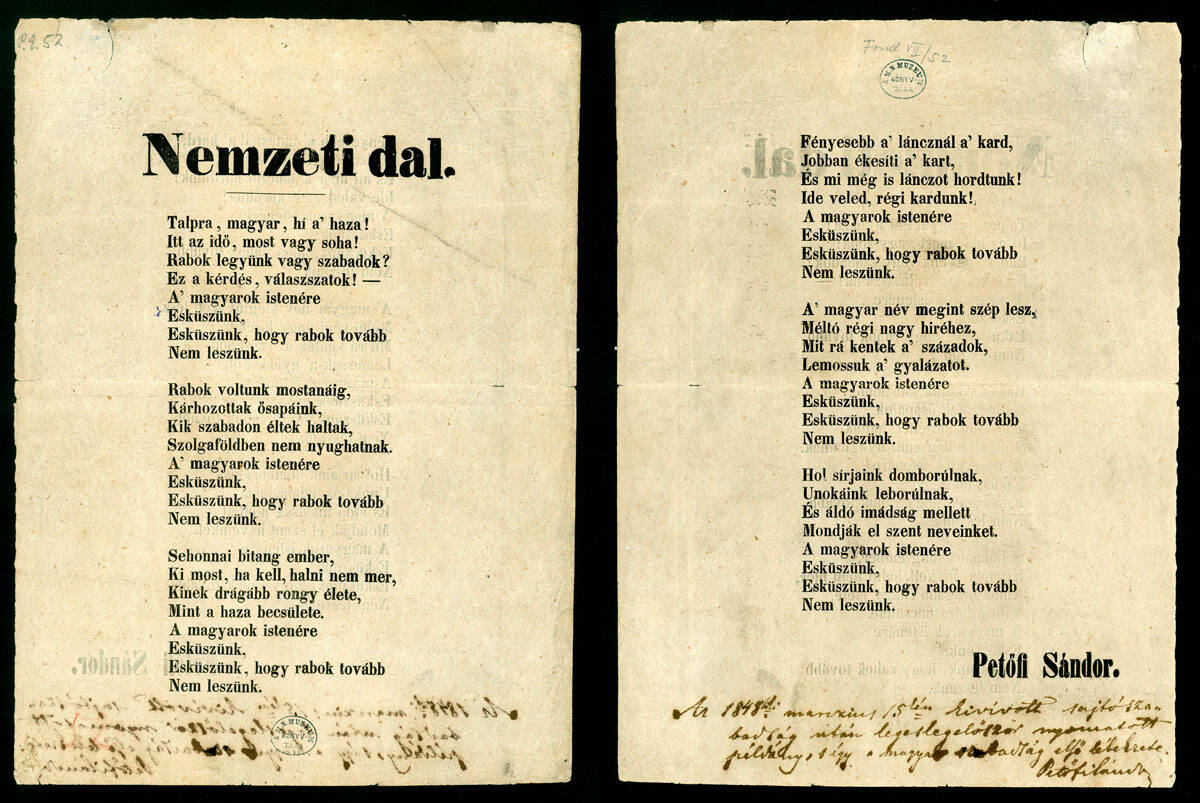 P.2.52
Nemzeti dal.
Talpra, magyar, hí a’ haza!
Itt az idő, most vagy soha!
Rabok legyünk vagy szabadok?
Ez a kérdés, válaszszatok! —
A’ magyarok istenére
Esküszünk,
Esküszünk, hogy rabok tovább
Nem leszünk.
Rabok voltunk mostanáig,
Kárhozottak ősapáink,
Kik szabadon éltek haltak,
Szolgaföldben nem nyughatnak.
A’ magyarok istenére
Esküszünk,
Esküszünk, hogy rabok tovább
Nem leszünk.
Sehonnai bitang ember,
Ki most, ha kell, halni nem mer,
Kinek drágább rongy élete,
Mint a haza becsülete.
A magyarok istenére
Esküszünk,
Esküszünk, hogy rabok tovább
Nem leszünk.
M. N. MUZEUM
KÖNYV-
TÁRA
Fond VII/52
M. N. MUZEUM
KÖNYV-
TÁRA
Fényesebb a’ láncznál a’ kard,
Jobban ékesíti a’ kart,
És mi még is lánczot hordtunk!
Ide veled, régi kardunk!
A magyarok istenére
Esküszünk,
Esküszünk, hogy rabok tovább
Nem leszünk.
A’ magyar név megint szép lesz,
Méltó régi nagy hiréhez,
Mit rá kentek a’ századok,
Lemossuk a’ gyalázatot.
A magyarok istenére
Esküszünk,
Esküszünk, hogy rabok tovább
Nem leszünk.
Hol sírjaink domborúlnak,
Unokáink leborúlnak,
És áldó imádság mellett
Mondják el szent neveinket.
A magyarok istenére
Esküszünk,
Esküszünk, hogy rabok tovább
Nem leszünk.
Petőfi Sándor.
Az 1848diki marczius 15kén kivívott sajtósza-
badság után legeslegelőször nyomatott
példány, s így a magyar szabadság első lélekzete.
Petőfi Sándor